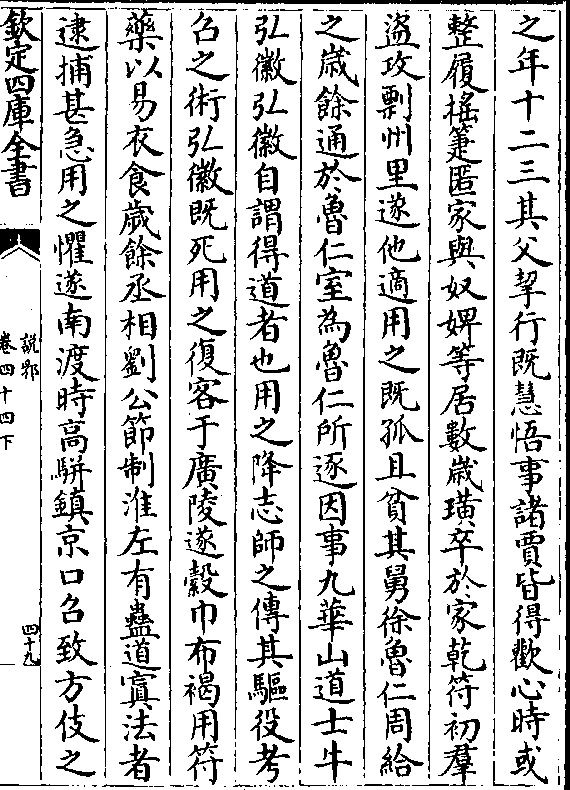 之年十二三其父挈行既慧悟事諸賈皆得歡心時或
整履搖箑匿家與奴婢等居數歳璜卒於家乾符初羣
盗攻剽州里遂他適用之既孤且貧其舅徐魯仁周給
之歳餘通於魯仁室為魯仁所逐因事九華山道士牛
弘徽弘徽自謂得道者也用之降志師之傳其驅役考
召之術弘徽既死用之復客于廣陵遂縠巾布褐用符
藥以易衣食歳餘丞相劉公節制淮左有蠱道寘法者
逮捕甚急用之懼遂南渡時高駢鎮京口召致方伎之
欽定四庫全書
說郛
卷四十四下
四十九